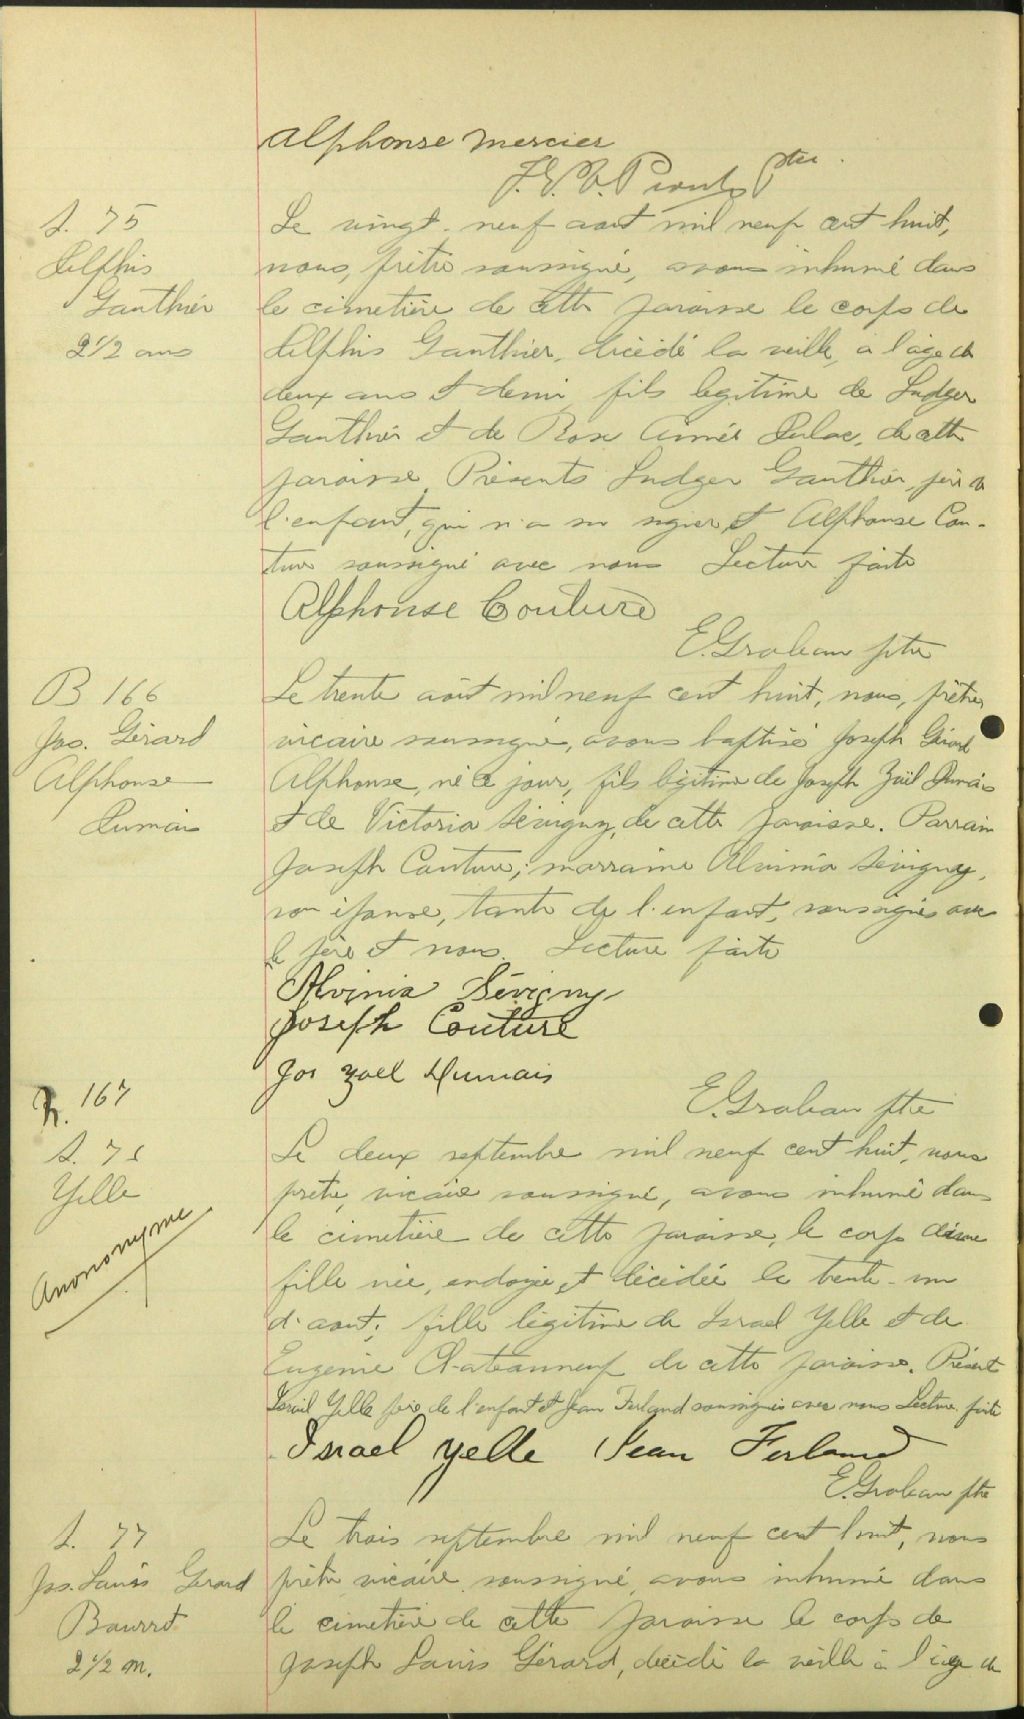 Alphonse Mercier
J. E. V. Ptre
S. 75
Delphis
Gauthier
2 1/2 ans
Le vingt-neuf aout mil neuf cent huit,
nous, prêtre soussigné, avons inhumé dans
le cimetière de cette paroisse le corps de
Delphis Gauthier, décédé la veille, à l'âge de
deux ans et demi, fils legitime de Ludger
Gauthier et de Rose Aimée Dulac, de cette
paroisse. Présents Ludger Gauthier, père de
l'enfant, qui n'a su signer, et Alphonse Cou-
ture soussigné avec nous Lecture faite
Alphonse Couture
E. Grobeau ptre
B 166
Jos. Gérard
Alphonse
Dumais
Le trente août mil neuf cent huit, nous, prêtre
vicaire soussigné, avons baptisé Joseph Gérard
Alphonse, né ce jour, fils légitime de Joseph Zoël Dumais
et de Victoria Sévigny, de cette paroisse. Parrain
Joseph Couture; marraine Alvinia Sévigny,
son épouse, tante de l'enfant, soussignés avec
le père et nous. Lecture faite
Alvinia Sévigny
Joseph Couture
Jos Zoel Dumais
E. Grobeau ptre
167
S. 76
Yelle
Anononyme
Le deux septembre mil neuf cent huit, nous
prêtre, vicaire soussigné, avons inhumé dans
le cimetière de cette paroisse, le corps d'une
fille née, ondoyée, et décédée le trente-un
d'aout; fille légitime de Israel Yelle et de
Eugenie Chateauneuf de cette paroisse. Présent
Israël Yelle père de l'enfant et Jean Ferland soussignés avec nous Lecture faite
Israel Yelle Jean Ferland
E. Grobeau ptre
S. 77
Jos. Louis Gerard
2 1/2 m.
Le trois septembre mil neuf cent huit, nous
prêtre vicaire soussigné, avons inhumé dans
le cimetière de cette paroisse le corps de
Joseph Louis Gérard, décédé la veille à l'âge de